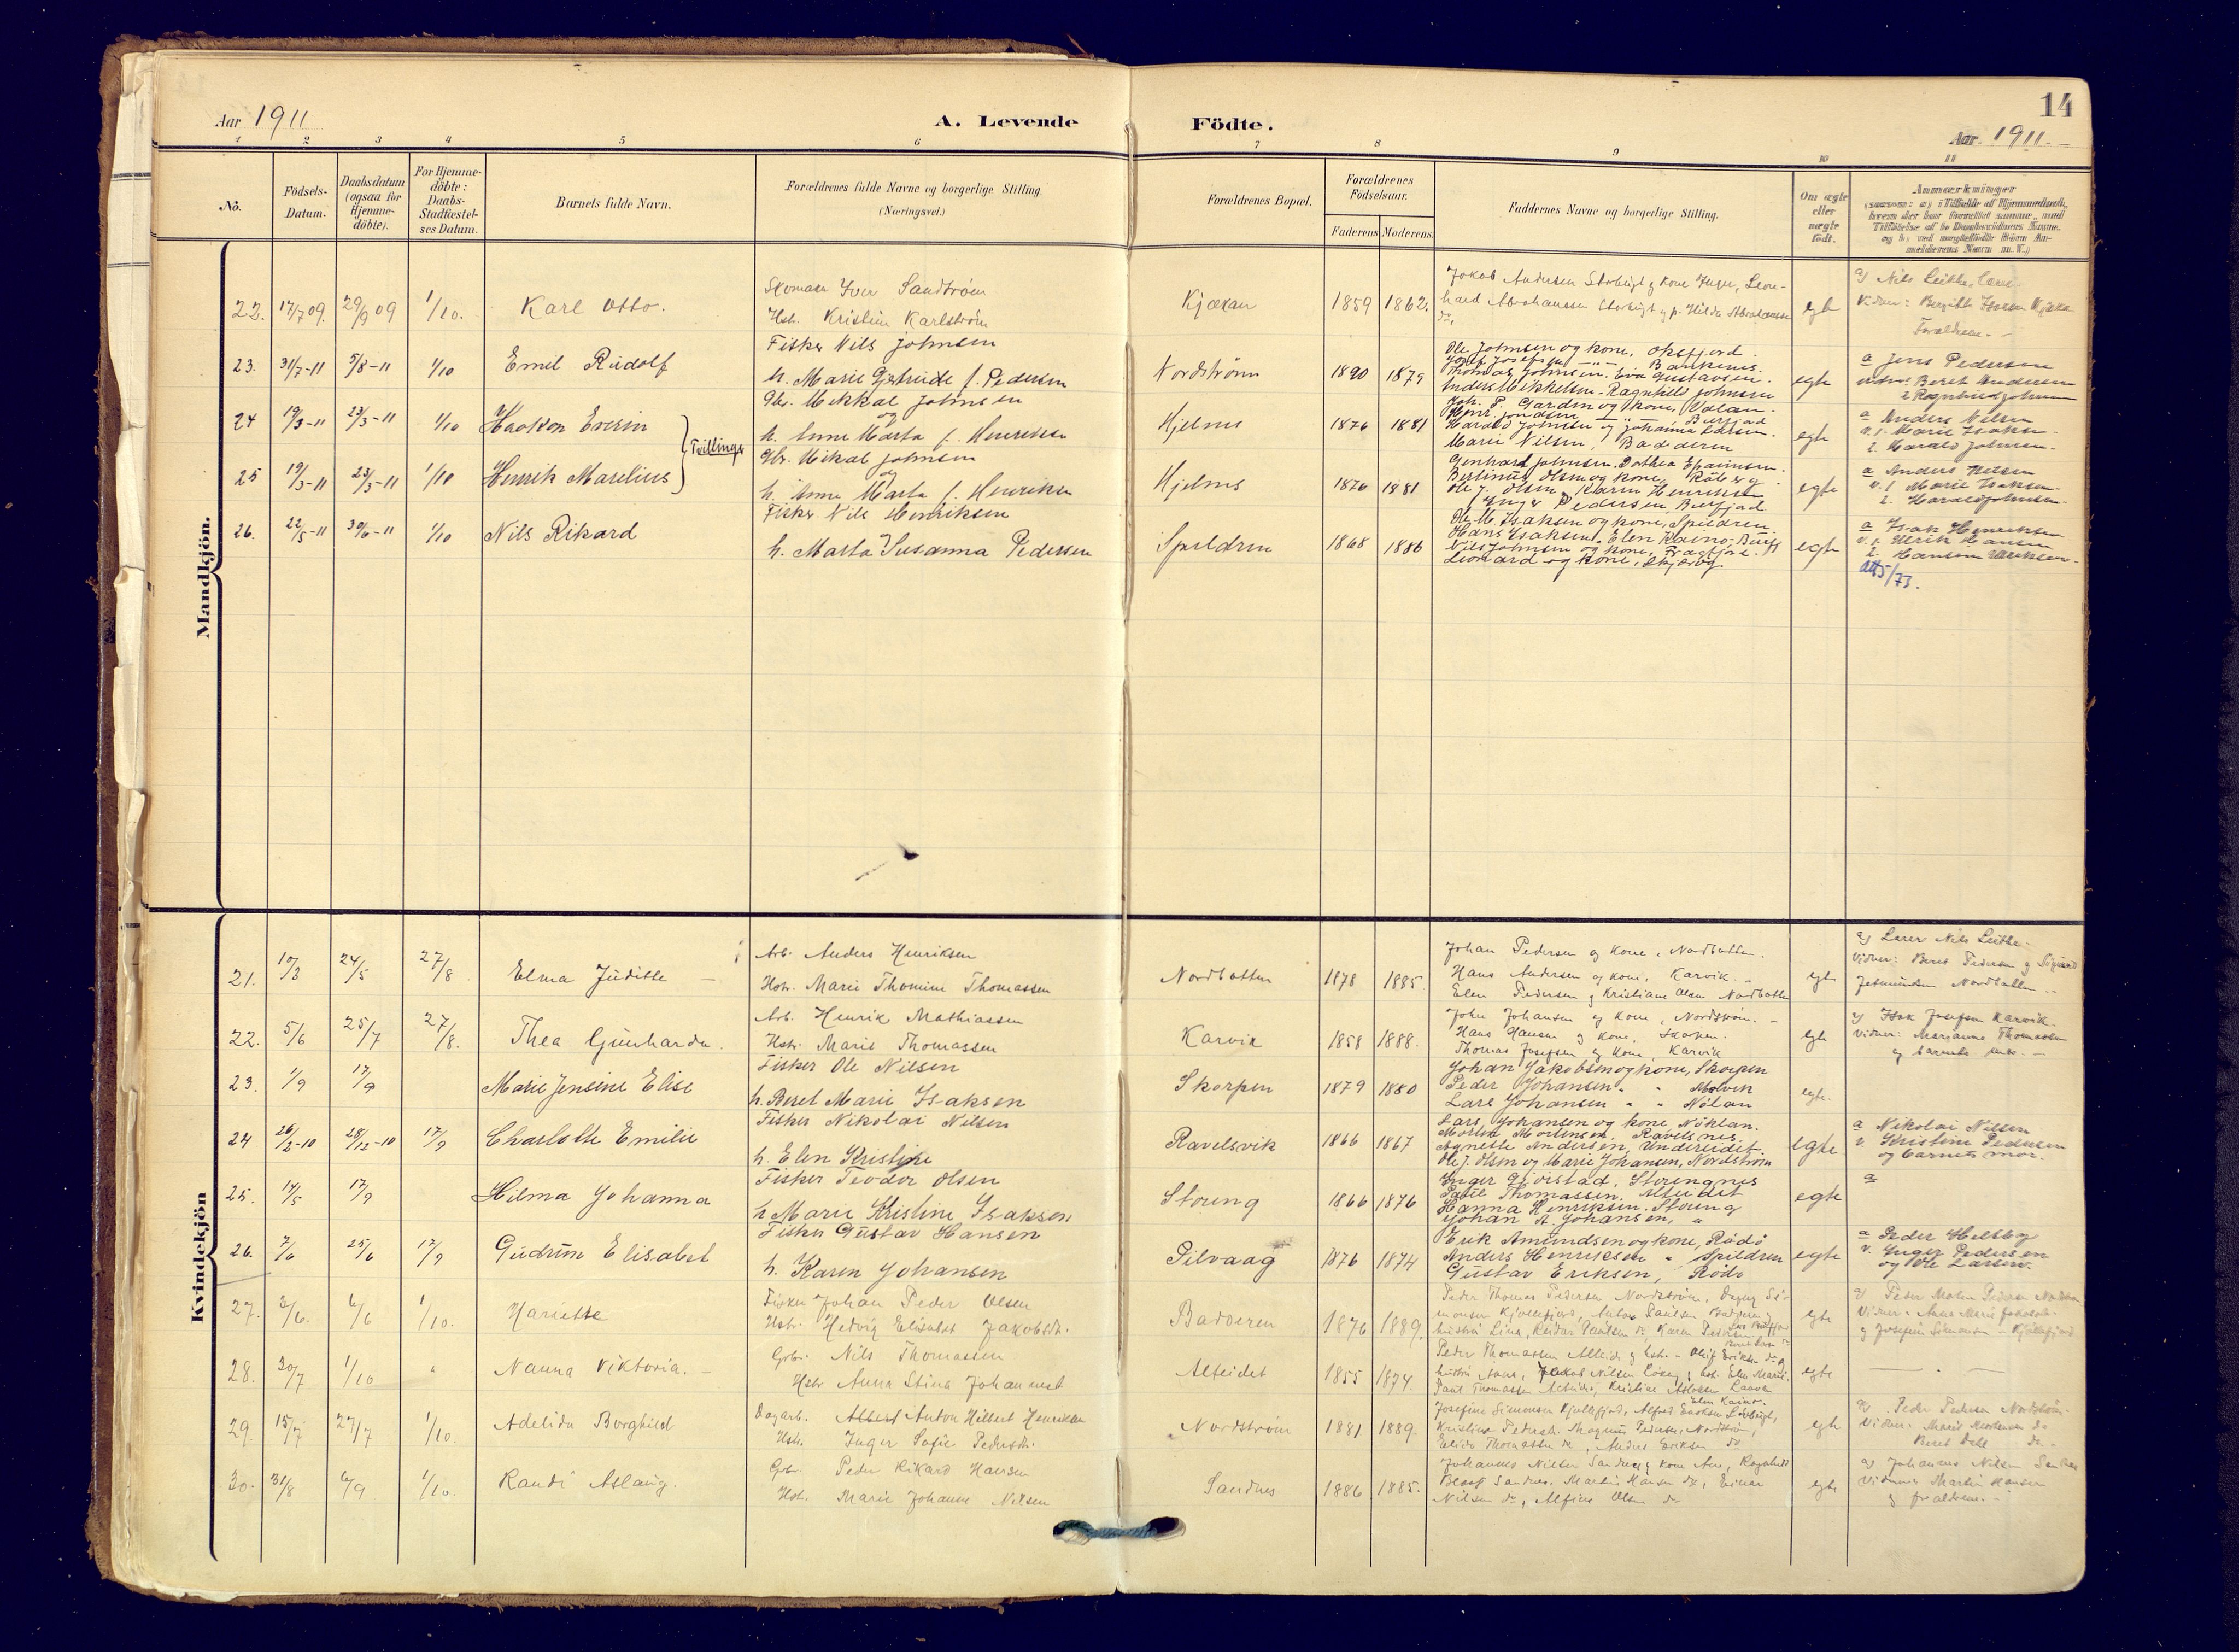 Aar 1911
A. Levende Fødte.
14
Aar 1911.
1 2 3 4 5 6 7 8 9 10 11
No.
Födsels-Datum.
Daabsdatum (ogsaa for Hjemme-döbte).
For Hjemme-döbte: Daabs-Stadfæstel-ses Datum.
Barnets fulde Navn.
Forældrenes fulde Navne og borgerlige Stilling (Næringsvei.)
Forældrenes Bopæl.
Forældrenes Födselsaar.
Faderens Moderens.
Faddernes Navne og borgerlige Stilling.
Om ægte eller uægte födt.
Anmærkninger
Mandkjön.
22. 17/7 09. 29/9 09 1/10. Karl Otto.
Iver Sandström
Hst. Kristin Karlström
Kjækan 1859 1862.
Jokab Andersen Storbugt og kone Inger, Leon-
hard Abrahamsen Storbugt og p. Hilda
do,
egte
a) Nils Leithe,
Vidner: Bergitt Isaksen
Forældrene.
23. 31/7-11 5/8-11 1/10 Emil Rudolf
Fisker Nils Johnsen
h. Marie Gjertrude f. Pedersen
Nordström 1890 1879
Ole Johnsen og kone, Oksfjord.
Josef Josefsen
Thomas Johnsen. Eva Gustavsen.
Anders Mikkelsen. Ragnhild Johnsen
egte
a Jens Pedersen
vidner: Beret Andersen
2 Ragnhild Johnsen
24 19/3-11 23/3-11 1/10 Haakon Everin
Tvillinger
Gbr. Mikkal Johnsen
og
h. Anne Marta f. Henriksen
Hjelmes 1876 1881.
Joh. P. Garden og kone,
Henr. Jondsen Burfjad
Harald Johnsen og Johanna Larsen.
Marie Nilsen, Badderen
egte
a Anders Nilsen
v. 1. Marie Isaksen
2. Harald Johnsen.
25 19/3-11 23/3-11 1/10 Henrik Marelius
Gbr. Mikal Johnsen
og
h. Anna Marta f. Henriksen
Hjelmes 1876 1881
Genhard Johnsen. Dorthea
Bertinus Olsen og kone,
Ole J. Olsen, Karin Henriksen
Inger Pedersen Burfjad
egte
a Anders Nilsen
v. 1 Marie Isaksen
2. Harald Johnsen.
26. 22/5-11 30/6-11 1/10 Nils Rikard
Fisker Nils Henriksen
h. Marta Susanna Pedersen
Spildren 1868 1886
Ole M. Isaksen og kone, Spildren.
Hans Isaksen. Elen Kaino.
Nils Johnsen og kone,
Leonard og kone, Skjærvø
egte
a Isak Henriksen
v. 1. Ulrik Hansen
2. Hansine Ulriksen.
att 5/73.
Kvindekjön
21. 10/3 24/5 27/8 Elma Juditte
Arb. Anders Henriksen
Hstr. Marie Thomine Thomassen
Nordbotten 1878 1885.
Johan Pedersen og kone, Nordbotten.
Hans Andersen og kone, Karvik.
Elen Pedersen og Kristiane Olsen Nordbotten
egte
a) Lærer Nils Leithe
Vidner: Beret Pedersen og Sigurd
Nordbotten.
22. 5/6 25/7 27/8. Thea Gunharda.
Arb. Henrik Mathiassen
Hstr. Marie Thomassen
Karvik 1858 1888.
John Johansen og kone, Nordstrøm.
Hans Hansen og kone, Skorpen.
Thomas Josefsen og kone, Karvik
egte
a) Isak Josefsen Karvik.
Vidner: Marianne Thomassen
og barnets mor.
23. 1/9 17/9 Marie Jensine Elise
Fisker Ole Nilsen
h. Beret Marie Isaksen
Skorpen 1879 1880
Johan Jakobsen og kone, Skorpen
Peder Johansen " " Molvik
Lars Johansen " " Nölan
egte.
24 26/2-10 28/12-10 17/9 Charlotte Emilie
Fisker Nikolai Nilsen
h. Elen Kristine
Ravelsvik 1866 1867
Lars Johansen og kone, Nöklan.
Morten Mortensen, Ravelsnes.
Agnette Andersen, Undereidet.
Ole J. Olsen og Marie Johansen, Nordström
egte
a Nikolai Nilsen
v. Kristine Pedersen
og barnets mor.
25. 14/5 17/9 Hilma Johanna
Fisker Teodor Olsen
h Marie Kristine Isaksen
Storeng 1866 1876
Inger Gjörstad, Storengnes
Paul Thomassen, Alteidet
Hanna Henriksen. Storeng
Johan A. Johansen, "
egte
a
26. 7/6 25/6 17/9 Gudrun Elisabet
Fisker Gustav Hansen
h. Karen Johansen
Pilvaag 1876 1874
Erik Amundsen og kone, Rödö
Anders Henriksen " Spildren
Gustav Eriksen, Rödö
egte
a Peder Heltby
v. Inger Pedersen
og Ole Larsen.
27. 3/6. 6/6 1/10. Hariette
Fisker Johan Peder Olsen
Hstr. Hedvig Elisabet Jakobsdt.
Badderen 1876 1889.
Peder Thomas Pedersen Nordstrøm, Dagny Si-
monsen Kjøllefjord, Anton Paulsen Badderen og
hustru Lina, Reidar Paulsen do, Karen Pedersen
egte
a) Peder Pedersen
Vidner: Anne Marie Jakobsdt.
og Josefine Simonsen - Kjøllefjord
28. 30/7 1/10 " Nanna Viktoria.
Grbr. Nils Thomassen
Hstr Anna Stina Johannesdt
Alteidet 1855 1874.
Peder Thomassen Alteidet og hst. - Oluf Eriksen do og
hustru Anna, Jakob Nilsen og hst. Elen Marie.
Paul Thomassen Alteidet, Kristine
egte
29. 15/7 27/7 1/10. Adelida Borghild
Dagarb. Albert Anton Hilbert Henriksen
Hstr. Inger Sofie Pedersdt.
Nordstrøm 1881 1889.
Josefine Simonsen Kjøllefjord, Alfred
Kristine Pedersdt. Magnus Pedersen, Nordstrøm,
Elida Thomassen do, Anders Eriksen do
egte
a) Peder Pedersen Nordstrøm.
Vidner: Marie do
Beret Dahl do
30. 31/8 6/9 1/10. Randi Aslaug.
Grbr. Peder Rikard Hansen
Hst. Marie Johanne Nilsen
Sandnes 1886 1885.
Johannes Nilsen Sandnes og kone Ane, Ragnhild
Sandnes. Martin Hansen do, Einar
Nilsen do, Alfine Olsen do
egte
a) Johannes Nilsen Sandnes
Vidner Martin Hansen
og forældrene.